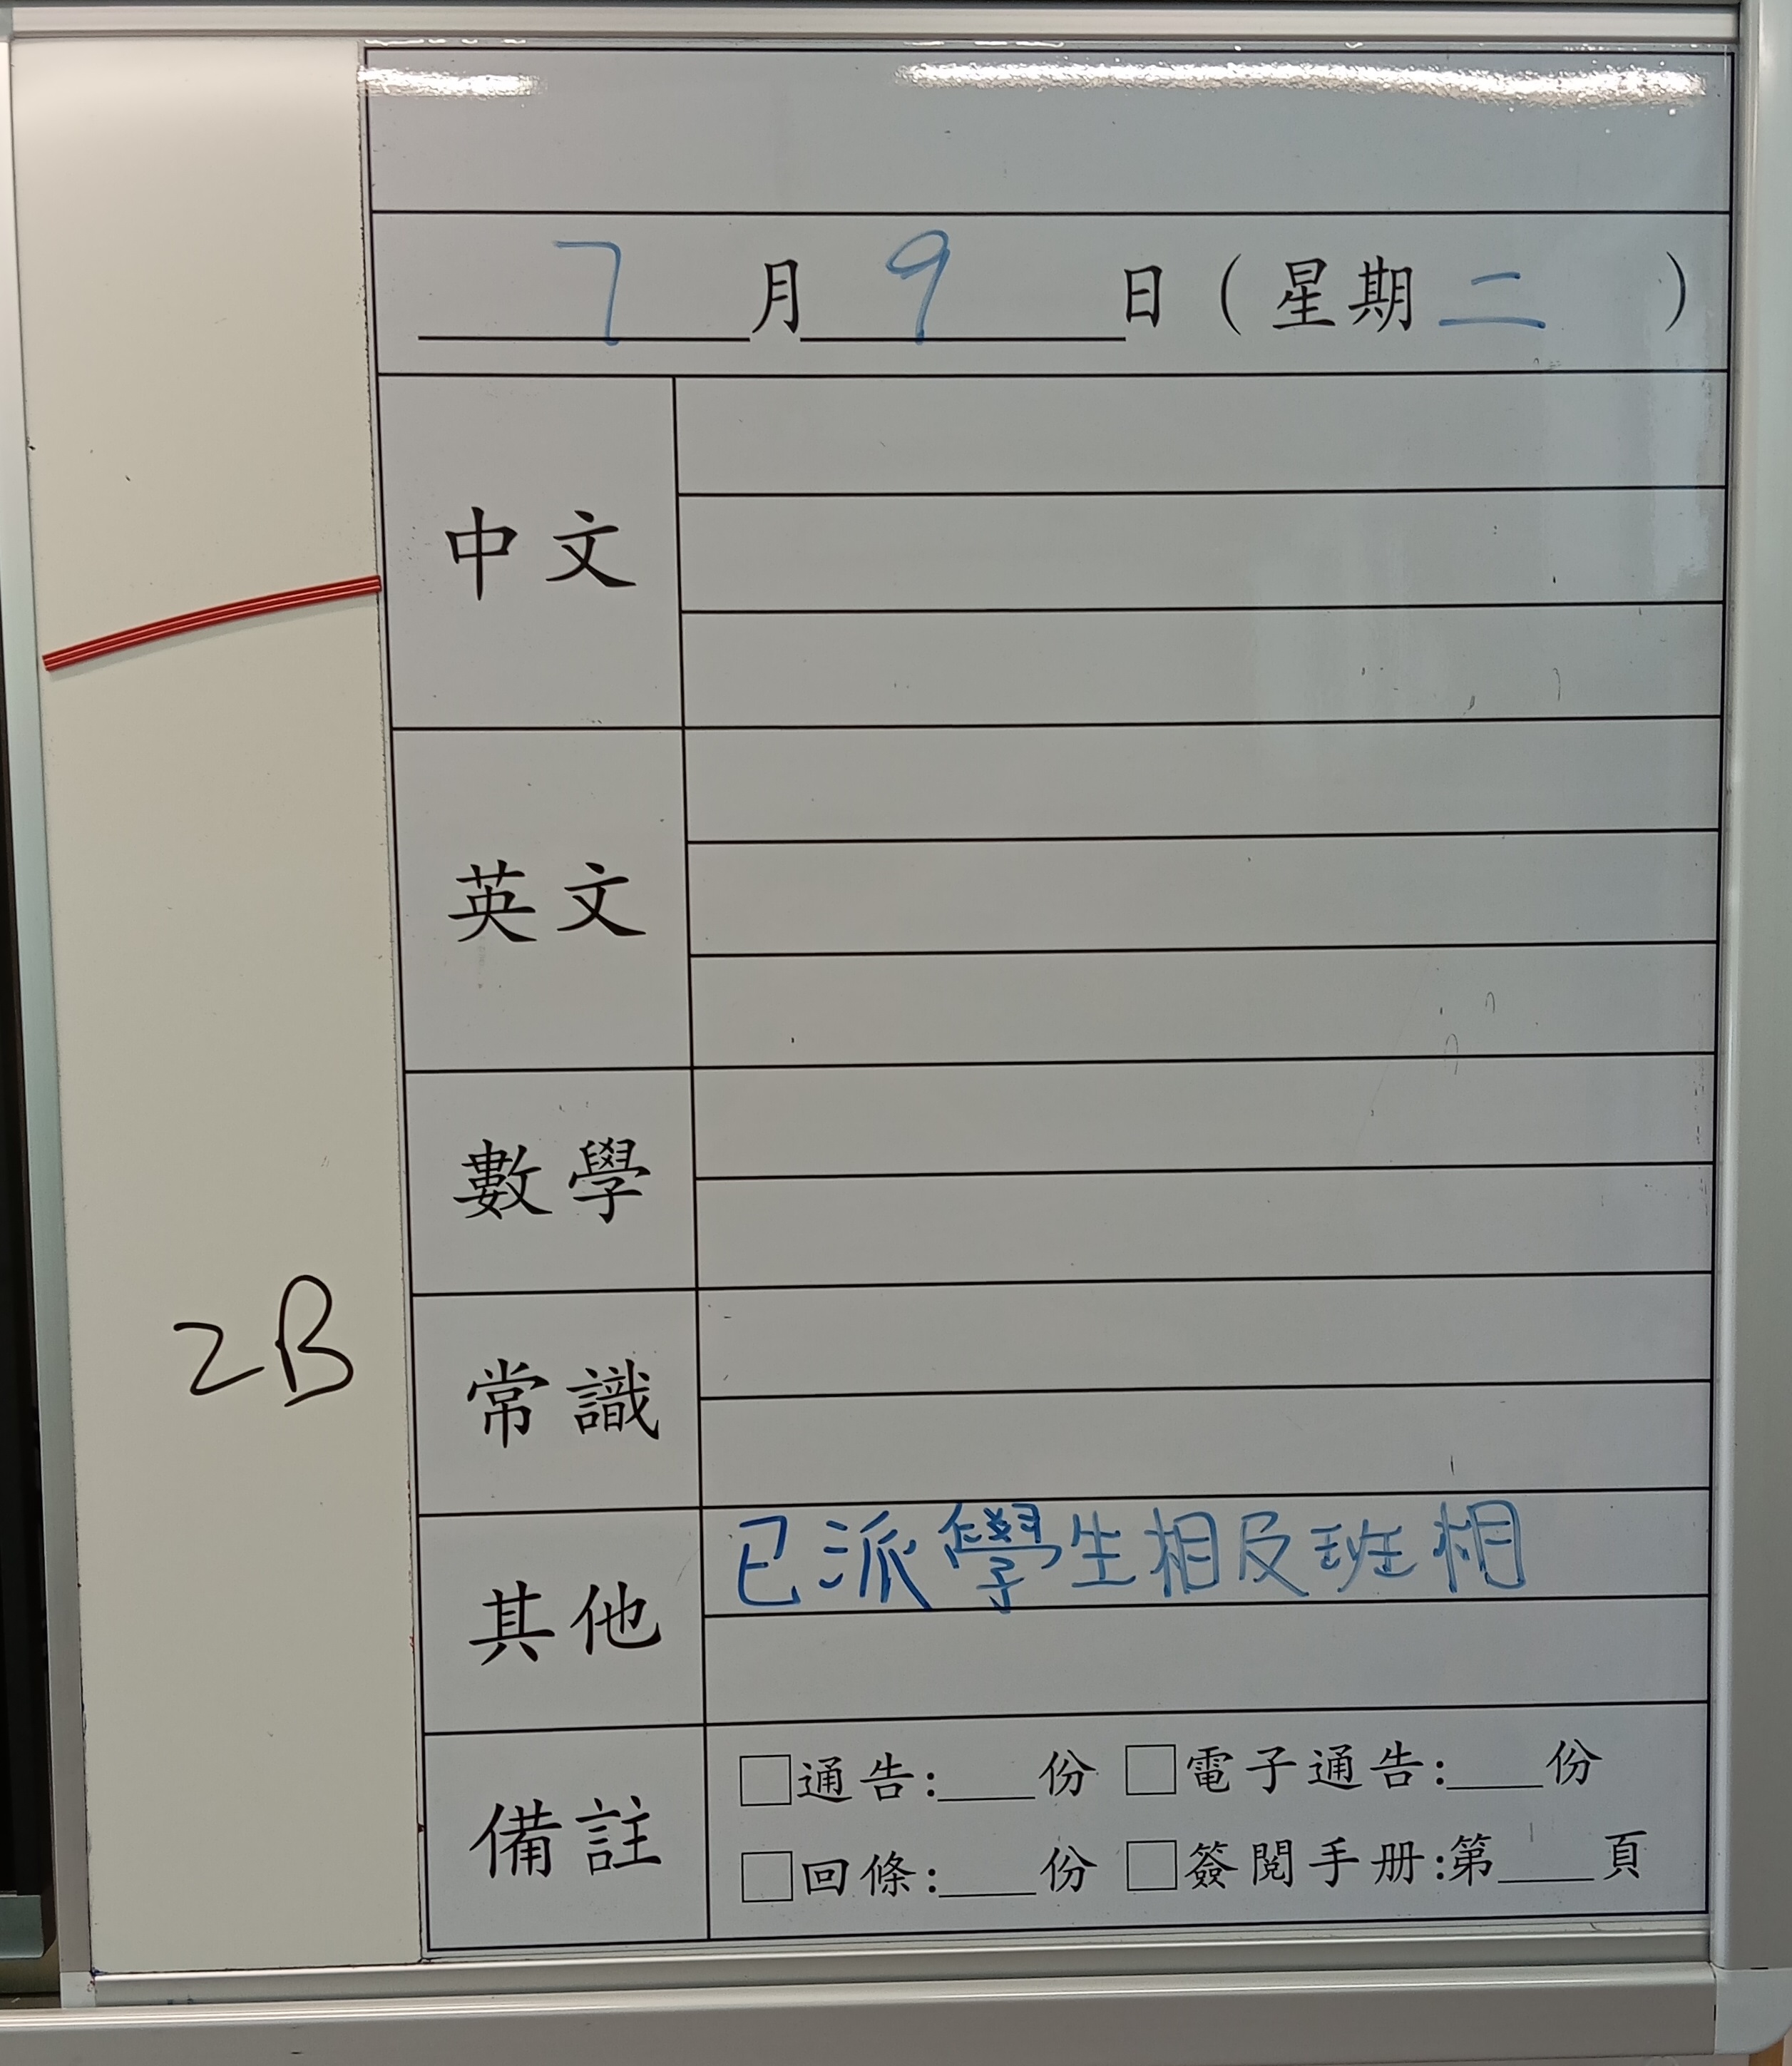 7月9日(星期二)
中文
英文
數學
2B
常識
其他
已派學生相及班相
備註
□通告:___份 □電子通告:___份
□回條:___份 □簽閱手册:第___頁